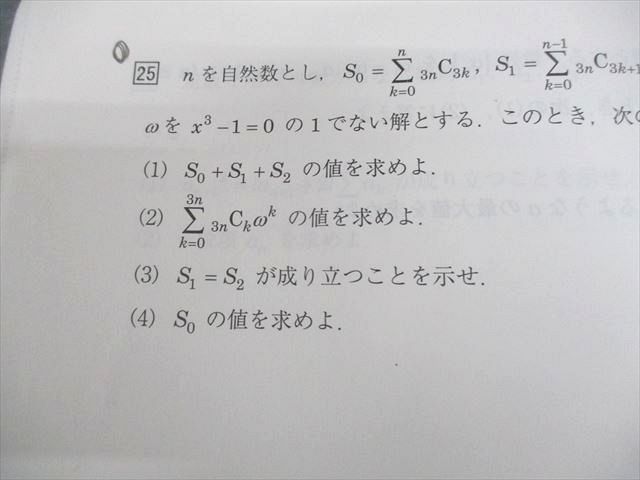 25 n を自然数とし, S₀ = ∑_{k=0}^{n} ₃ₙC₃ₖ, S₁ = ∑_{k=0}^{n-1} ₃ₙC₃ₖ₊₁
ω を x³−1=0 の 1 でない解とする. このとき, 次の
(1) S₀+S₁+S₂ の値を求めよ.
(2) ∑_{k=0}^{3n} ₃ₙCₖωᵏ の値を求めよ.
(3) S₁=S₂ が成り立つことを示せ.
(4) S₀ の値を求めよ.